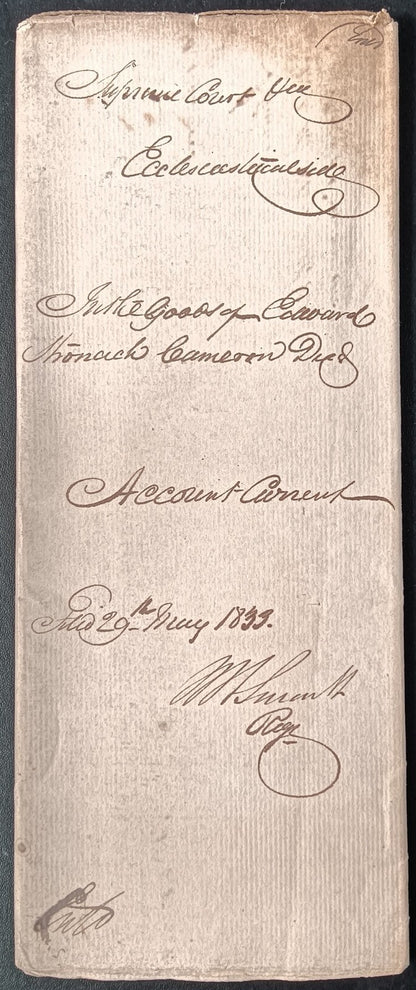 Supreme Court &ca
Ecclesiastical side
In the Goods of Edward
Stronach Cameron Decd
Account Current
Filed 29th May 1833.
Regr